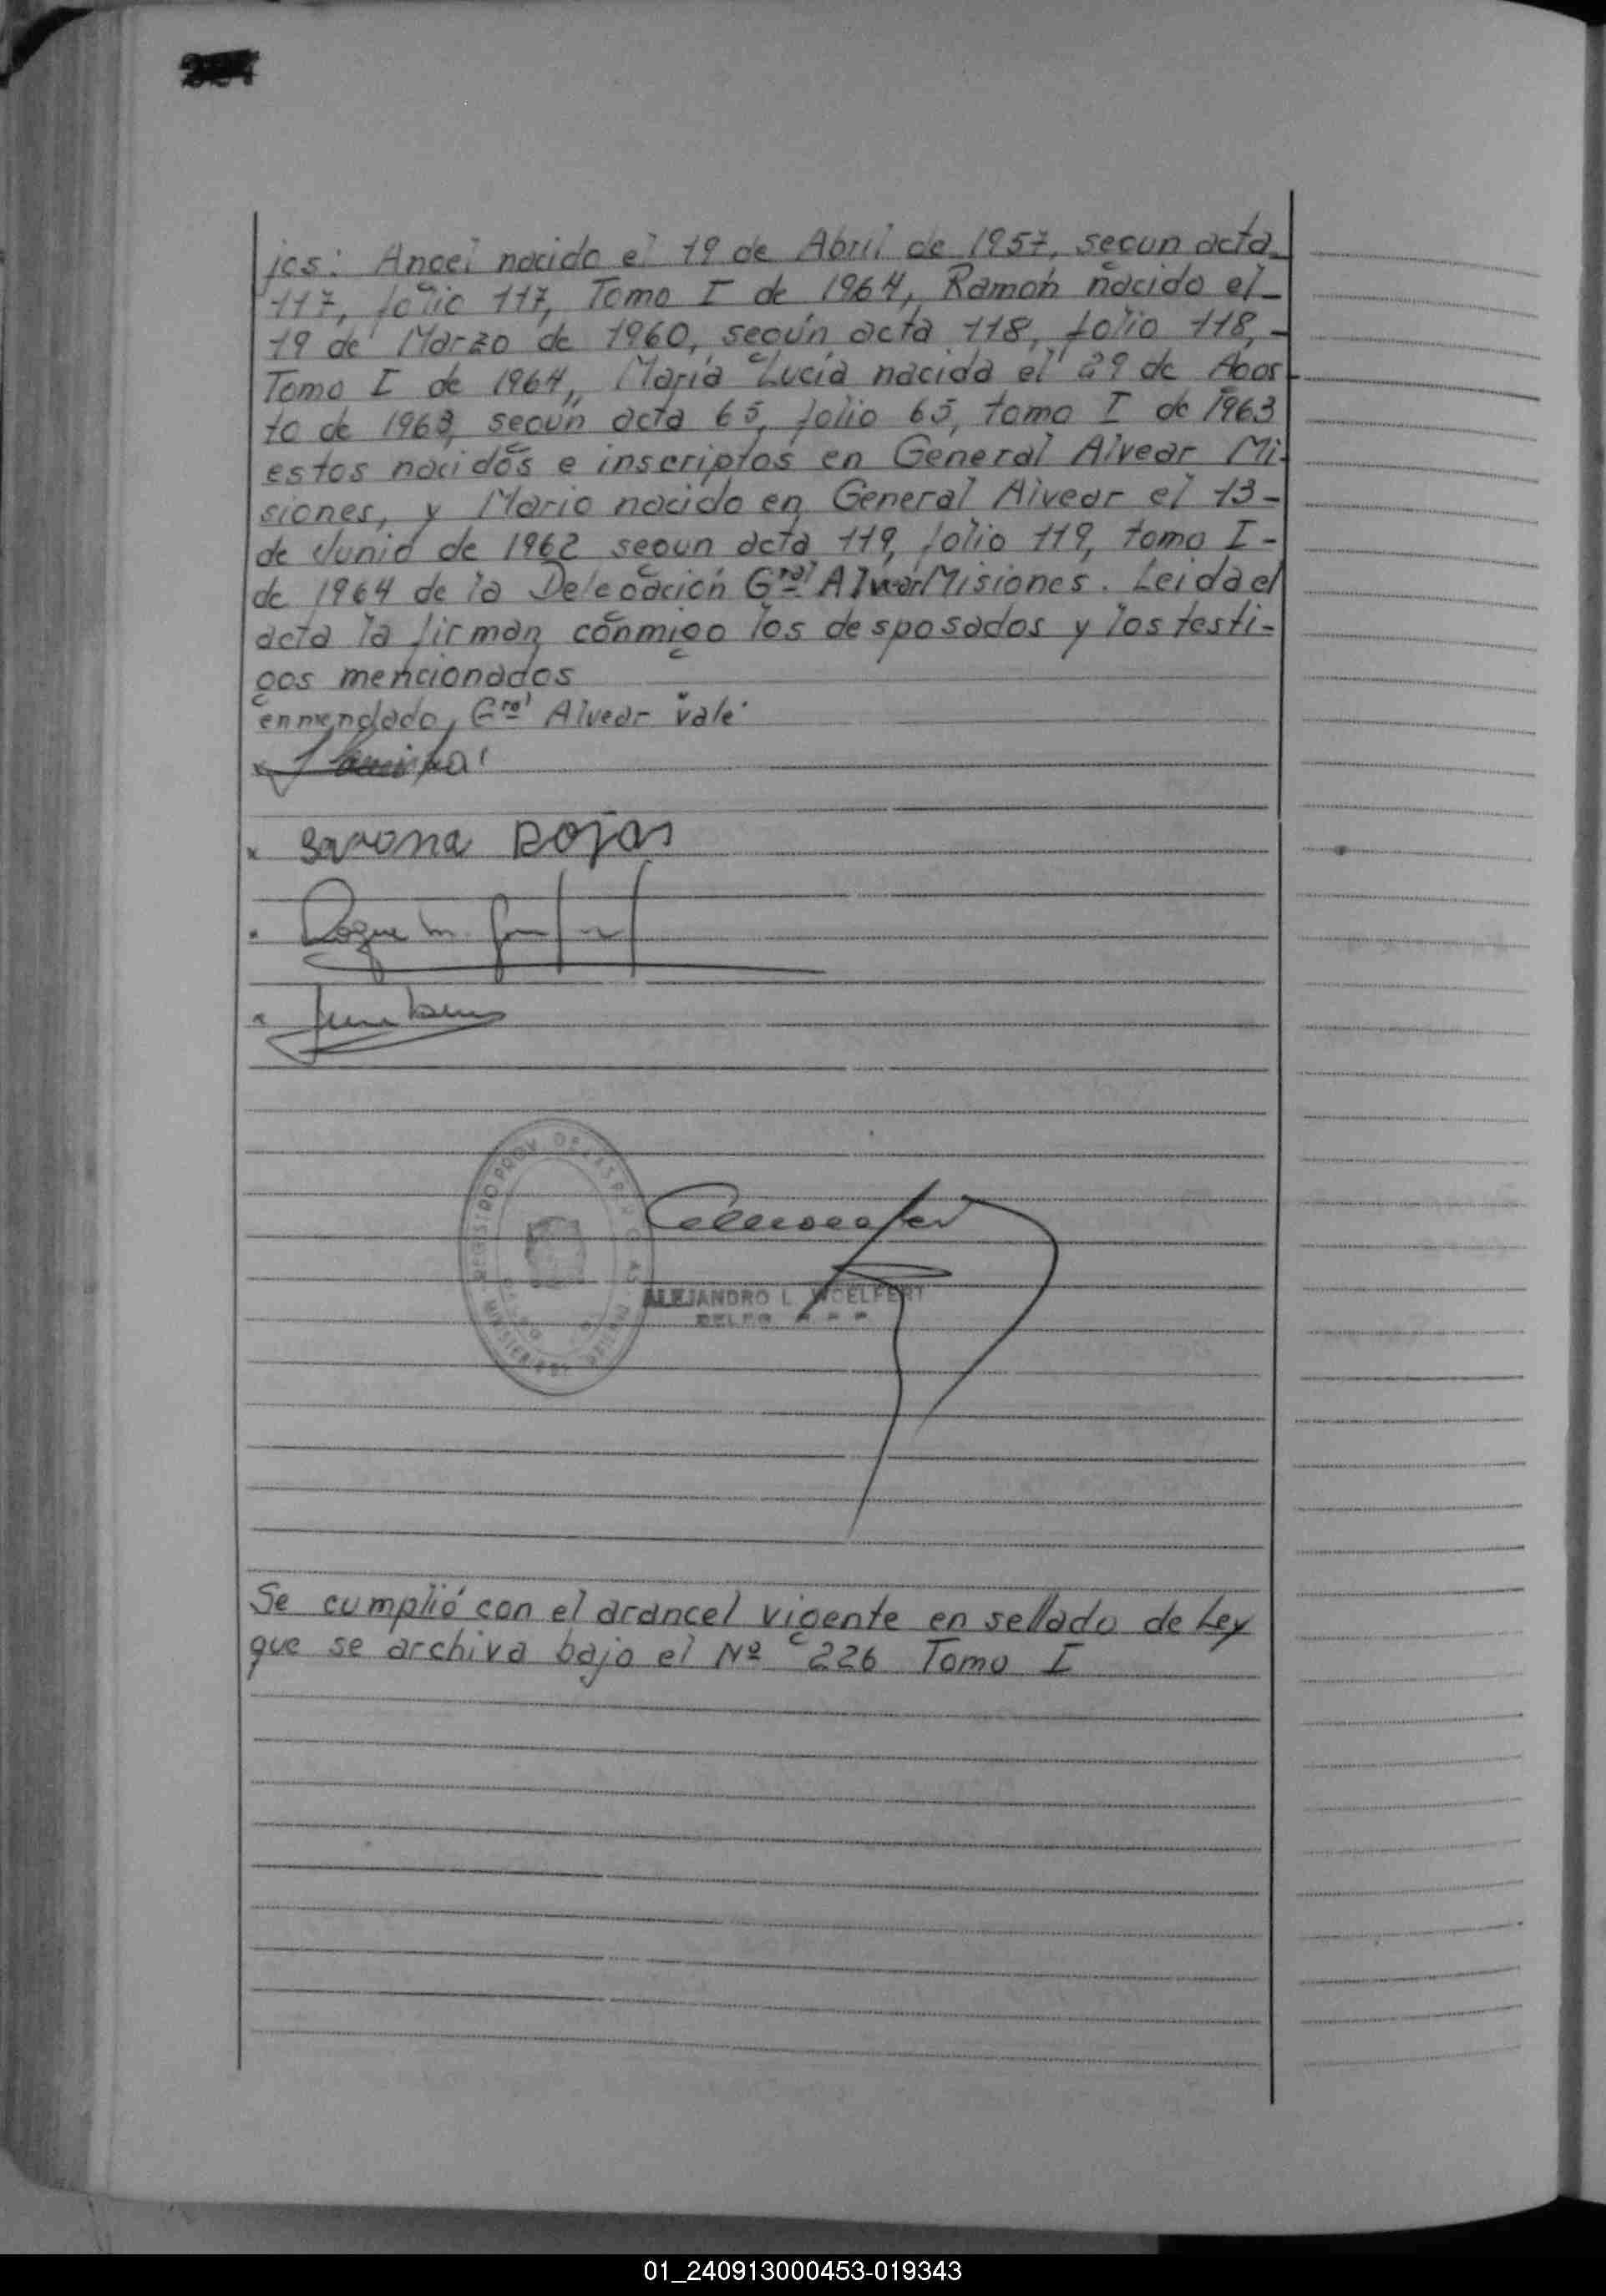 jos: Angel nacido el 19 de Abril de 1957, segun acta
117, folio 117, Tomo I de 1964, Ramón nacido el-
19 de Marzo de 1960, según acta 118, folio 118,-
Tomo I de 1964,, María Lucía nacida el 29 de Agos-
to de 1963, según acta 65, folio 65, tomo I de 1963
estos nacidos e inscriptos en General Alvear Mi-
siones, y Mario nacido en General Alvear el 13-
de Junio de 1962 segun acta 119, folio 119, tomo I-
de 1964 de la Delegación Gral Alvear Misiones. Leida el
acta la firman conmigo los desposados y los testi-
gos mencionados
enmendado, Gral Alvear vale
Rojas
Roque
REGISTRO PROV DE LAS P
ALEJANDRO L WOELFERT
Se cumplió con el arancel vigente en sellado de Ley
que se archiva bajo el Nº 226 Tomo I
01_240913000453-019343